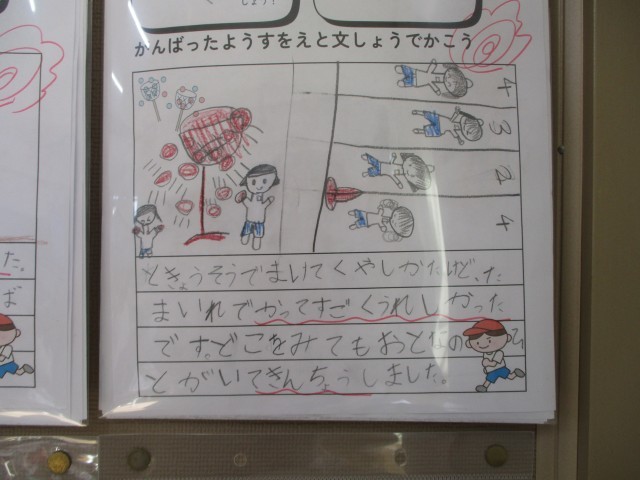 しょう！
がんばったようすをえと文しょうでかこう
4
3
2
4
ときょうそうでまけてくやしかたけど、た
まいれでかってすごくうれしかった
です。どこをみてもおとなのひ
とがいてきんちょうしました。
た。
ば